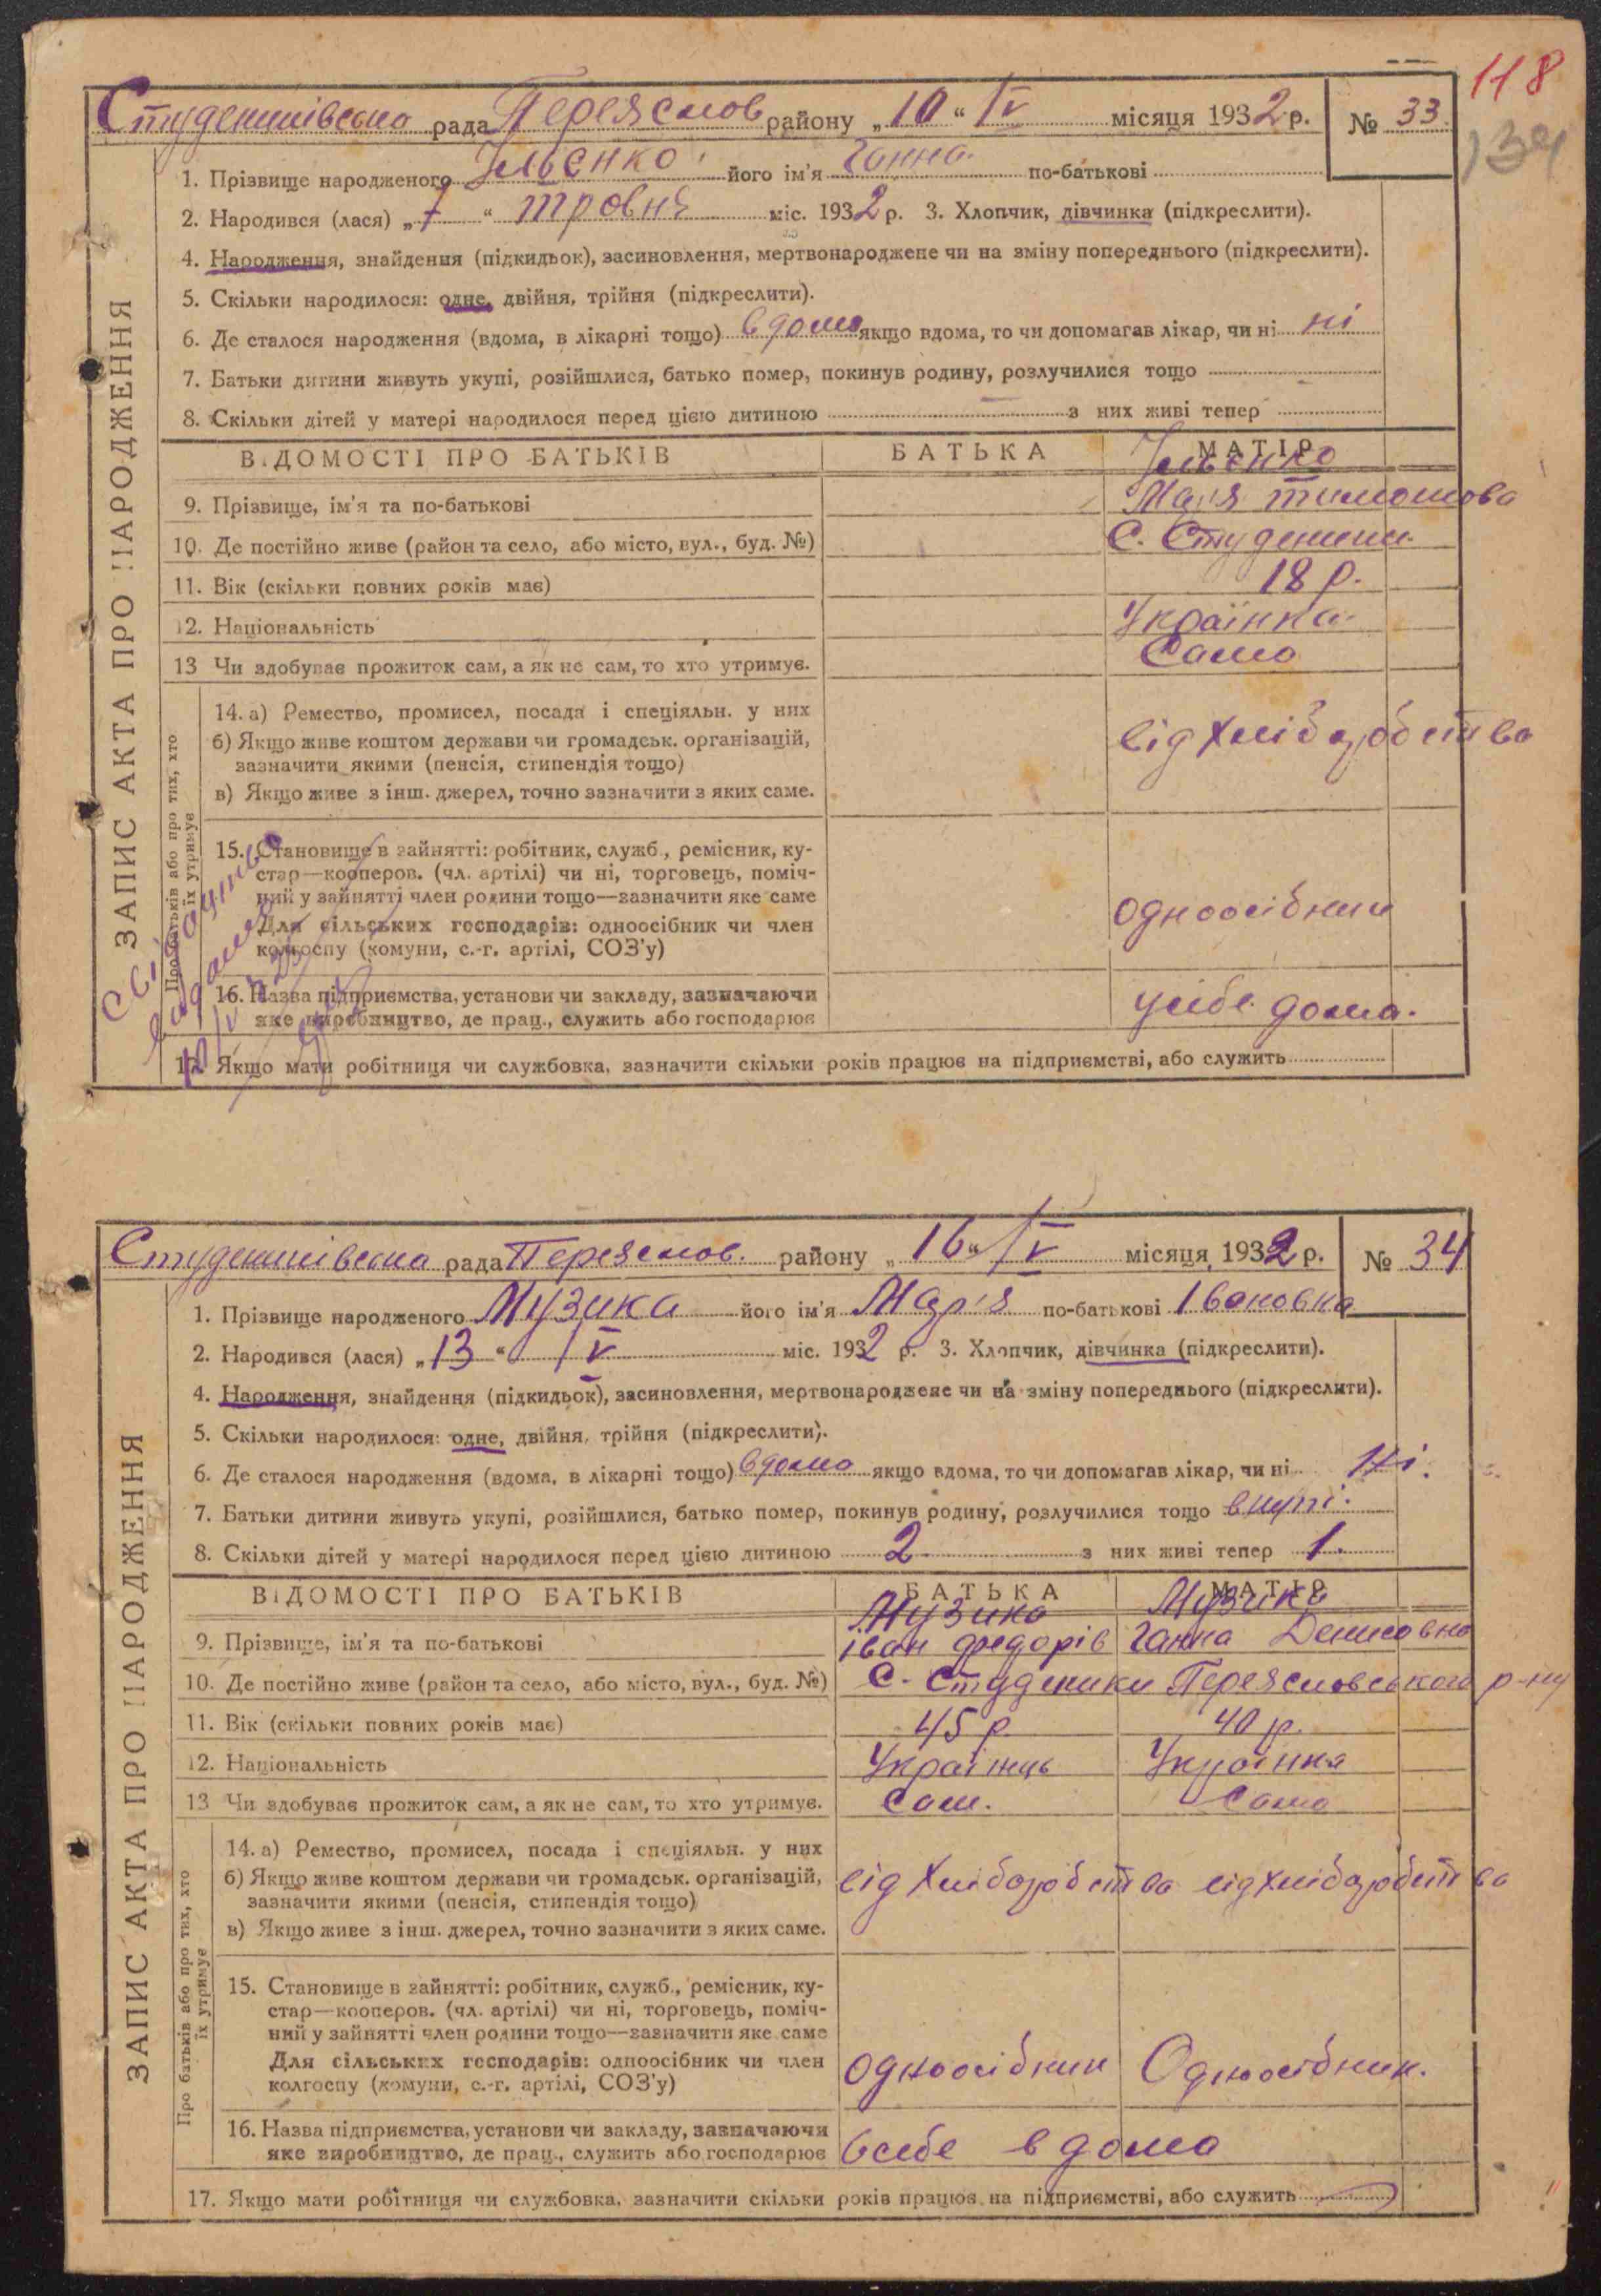 118
134
Студениківська рада Переяслов району „10“ IV місяця 1932 р. № 33
1. Прізвище народженого Ільєнко його ім'я Ганна по-батькові
2. Народився (лася) „7“ тровня міс. 1932 р. 3. Хлопчик, дівчинка (підкреслити).
4. Народження, знайдення (підкидьок), засиновлення, мертвонароджене чи на зміну попереднього (підкреслити).
5. Скільки народилося: одне, двійня, трійня (підкреслити).
6. Де сталося народження (вдома, в лікарні тощо) вдома якщо вдома, то чи допомагав лікар, чи ні ні
7. Батьки дитини живуть укупі, розійшлися, батько помер, покинув родину, розлучилися тощо
8. Скільки дітей у матері народилося перед цією дитиною з них живі тепер
ЗАПИС АКТА ПРО НАРОДЖЕННЯ
ВІДОМОСТІ ПРО БАТЬКІВ БАТЬКА МАТІР
Ільєнко
9. Прізвище, ім'я та по-батькові Марія тимошова
10. Де постійно живе (район та село, або місто, вул., буд. №) С. Студеники
11. Вік (скільки повних років має) 18 р.
12. Національність Українка
13 Чи здобуває прожиток сам, а як не сам, то хто утримує. Сама
Про батьків або про тих, хто їх утримує
14. а) Ремество, промисел, посада і спеціяльн. у них
б) Якщо живе коштом держави чи громадськ. організацій,
зазначити якими (пенсія, стипендія тощо)
від хліборобства
в) Якщо живе з інш. джерел, точно зазначити з яких саме.
15. Становище в зайнятті: робітник, служб., ремісник, ку-
стар—кооперов. (чл. артілі) чи ні, торговець, поміч-
ний у зайнятті член родини тощо—зазначити яке саме
Для сільських господарів: одноосібник чи член
колгоспу (комуни, с.-г. артілі, СОЗ'у)
одноосібник
16. Назва підприємства, установи чи закладу, зазначаючи
яке виробництво, де прац., служить або господарює
усібе дома.
17. Якщо мати робітниця чи службовка, зазначити скільки років працює на підприємстві, або служить
Студениківська рада Переяслов. району „16“ IV місяця 1932 р. № 34
1. Прізвище народженого Музика його ім'я Марія по-батькові Івановна
2. Народився (лася) „13“ IV міс. 1932 р. 3. Хлопчик, дівчинка (підкреслити).
4. Народження, знайдення (підкидьок), засиновлення, мертвонароджене чи на зміну попереднього (підкреслити).
5. Скільки народилося: одне, двійня, трійня (підкреслити).
6. Де сталося народження (вдома, в лікарні тощо) вдома якщо вдома, то чи допомагав лікар, чи ні Ні.
7. Батьки дитини живуть укупі, розійшлися, батько помер, покинув родину, розлучилися тощо вкупі.
8. Скільки дітей у матері народилося перед цією дитиною 2 з них живі тепер 1.
ЗАПИС АКТА ПРО НАРОДЖЕННЯ
ВІДОМОСТІ ПРО БАТЬКІВ БАТЬКА МАТІР
Музика Музика
9. Прізвище, ім'я та по-батькові іван федорів Ганна Денисовна
10. Де постійно живе (район та село, або місто, вул., буд. №) С. Студеники Переясловського р-ну
11. Вік (скільки повних років має) 45 р. 40 р.
12. Національність Українць Українка
13 Чи здобуває прожиток сам, а як не сам, то хто утримує. Сам. Сама
Про батьків або про тих, хто їх утримує
14. а) Ремество, промисел, посада і спеціяльн. у них
б) Якщо живе коштом держави чи громадськ. організацій,
зазначити якими (пенсія, стипендія тощо)
від хліборобства від хліборобства
в) Якщо живе з інш. джерел, точно зазначити з яких саме.
15. Становище в зайнятті: робітник, служб., ремісник, ку-
стар—кооперов. (чл. артілі) чи ні, торговець, поміч-
ний у зайнятті член родини тощо—зазначити яке саме
Для сільських господарів: одноосібник чи член
колгоспу (комуни, с.-г. артілі, СОЗ'у)
одноосібник Одноосібник.
16. Назва підприємства, установи чи закладу, зазначаючи
яке виробництво, де прац., служить або господарює
всебе вдома
17. Якщо мати робітниця чи службовка, зазначити скільки років працює на підприємстві, або служить